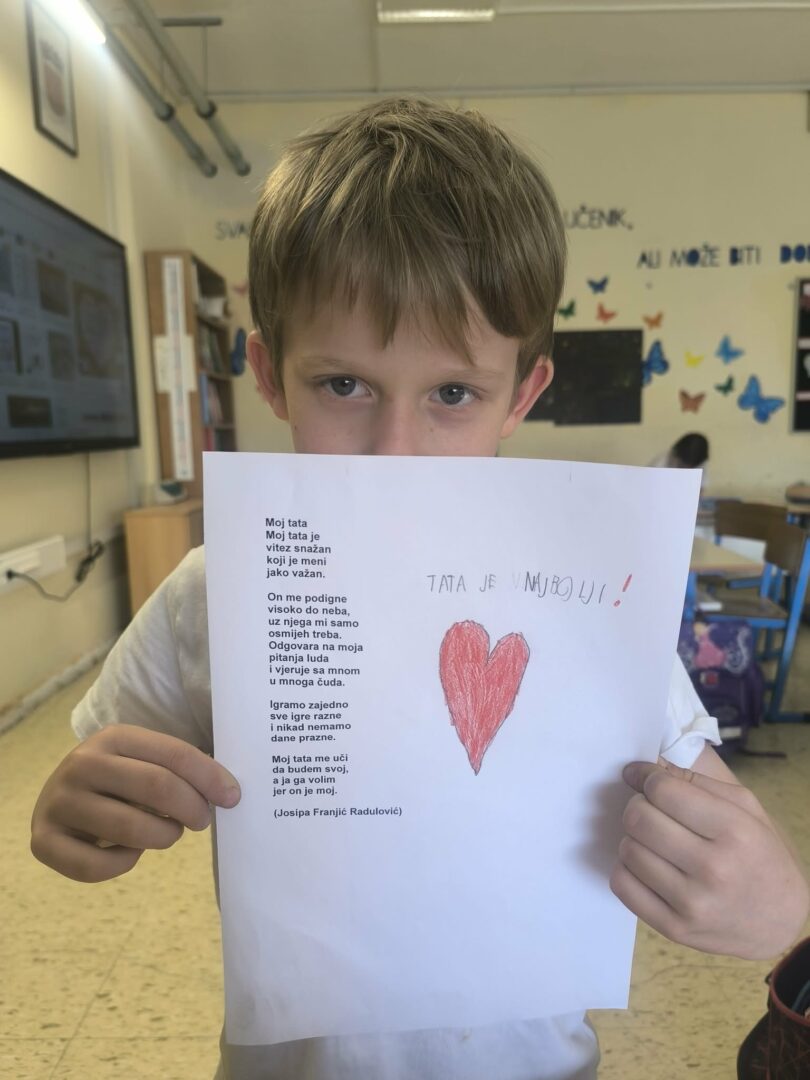 UČENIK,
ALI MOŽE BITI
Moj tata
Moj tata je
vitez snažan
koji je meni
jako važan.
On me podigne
visoko do neba,
uz njega mi samo
osmijeh treba.
Odgovara na moja
pitanja luda
i vjeruje sa mnom
u mnoga čuda.
Igramo zajedno
sve igre razne
i nikad nemamo
dane prazne.
Moj tata me uči
da budem svoj,
a ja ga volim
jer on je moj.
(Josipa Franjić Radulović)
TATA JE NAJBOLJI!